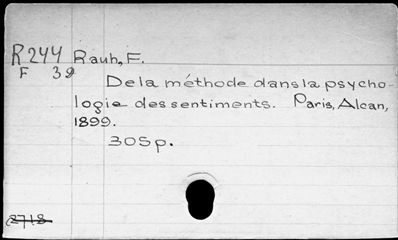 R244 Rauh, F.
F 39
De la méthode dans la psycho-
logie des sentiments. Paris, Alcan,
1899.
305p.